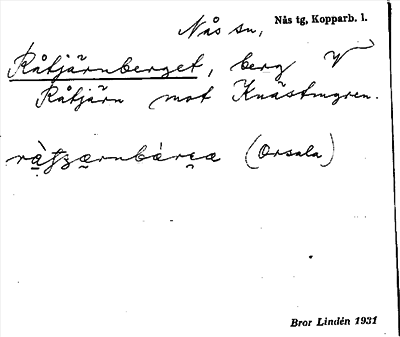 Nås sn, Nås tg, Kopparb. l.
Råtjärnberget, berg V
Råtjärn mot Knästmyren.
(Orsala)
Bror Lindén 1931